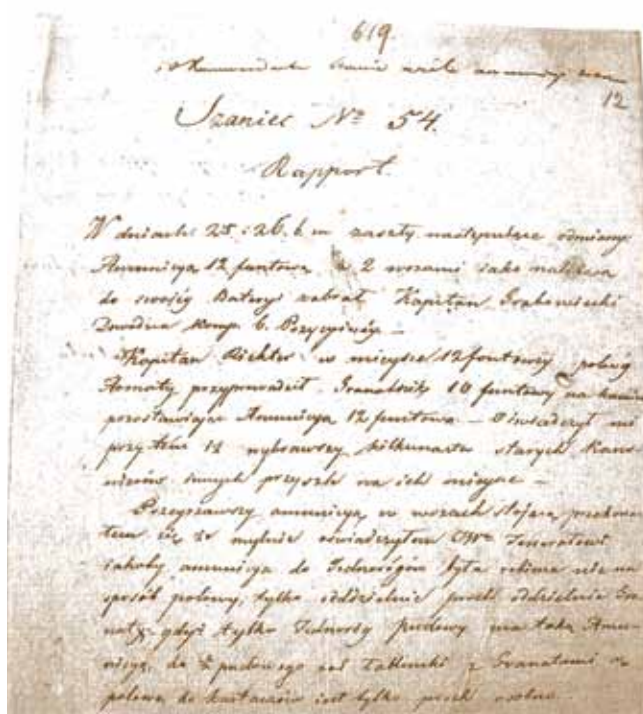 619.
12
Szaniec Nº 54.
Rapport.
W dniach 25 i 26 b m zaszły następujące odmiany.
Ammunicya 12 funtowa z 2 wozami jako należąca
do swoiéy Bateryi zabrał Kapitan Grabowiecki
Dowódca Komp 6. Pozycyinéy –
Kapitan Richter w mieysce 12 funtowéy polowéy
Armaty przyprowadził Granatnik 10 funtowy na
pozostawiając Ammunicyą 12 funtową – oświadczył mi
przytém iż wybrawszy kilkunastu starych Kano-
nierów innych przyszle na ich mieysce –
Przeyrzawszy ammunicyą w wozach stojącą przekona-
łem się że mylnie oświadczyłem Generałowi
jakoby amunicya do Jednorogów była robiona nie na
sposób polowy, tylko oddzielnie proch oddzielnie Gra-
nat, gdyż tylko Jednoróg pudowy ma taką Amu-
nicyą, do ½ pudowego zaś Ładunki z Granatami
polowe, do kartaczów jest tylko proch osobno.